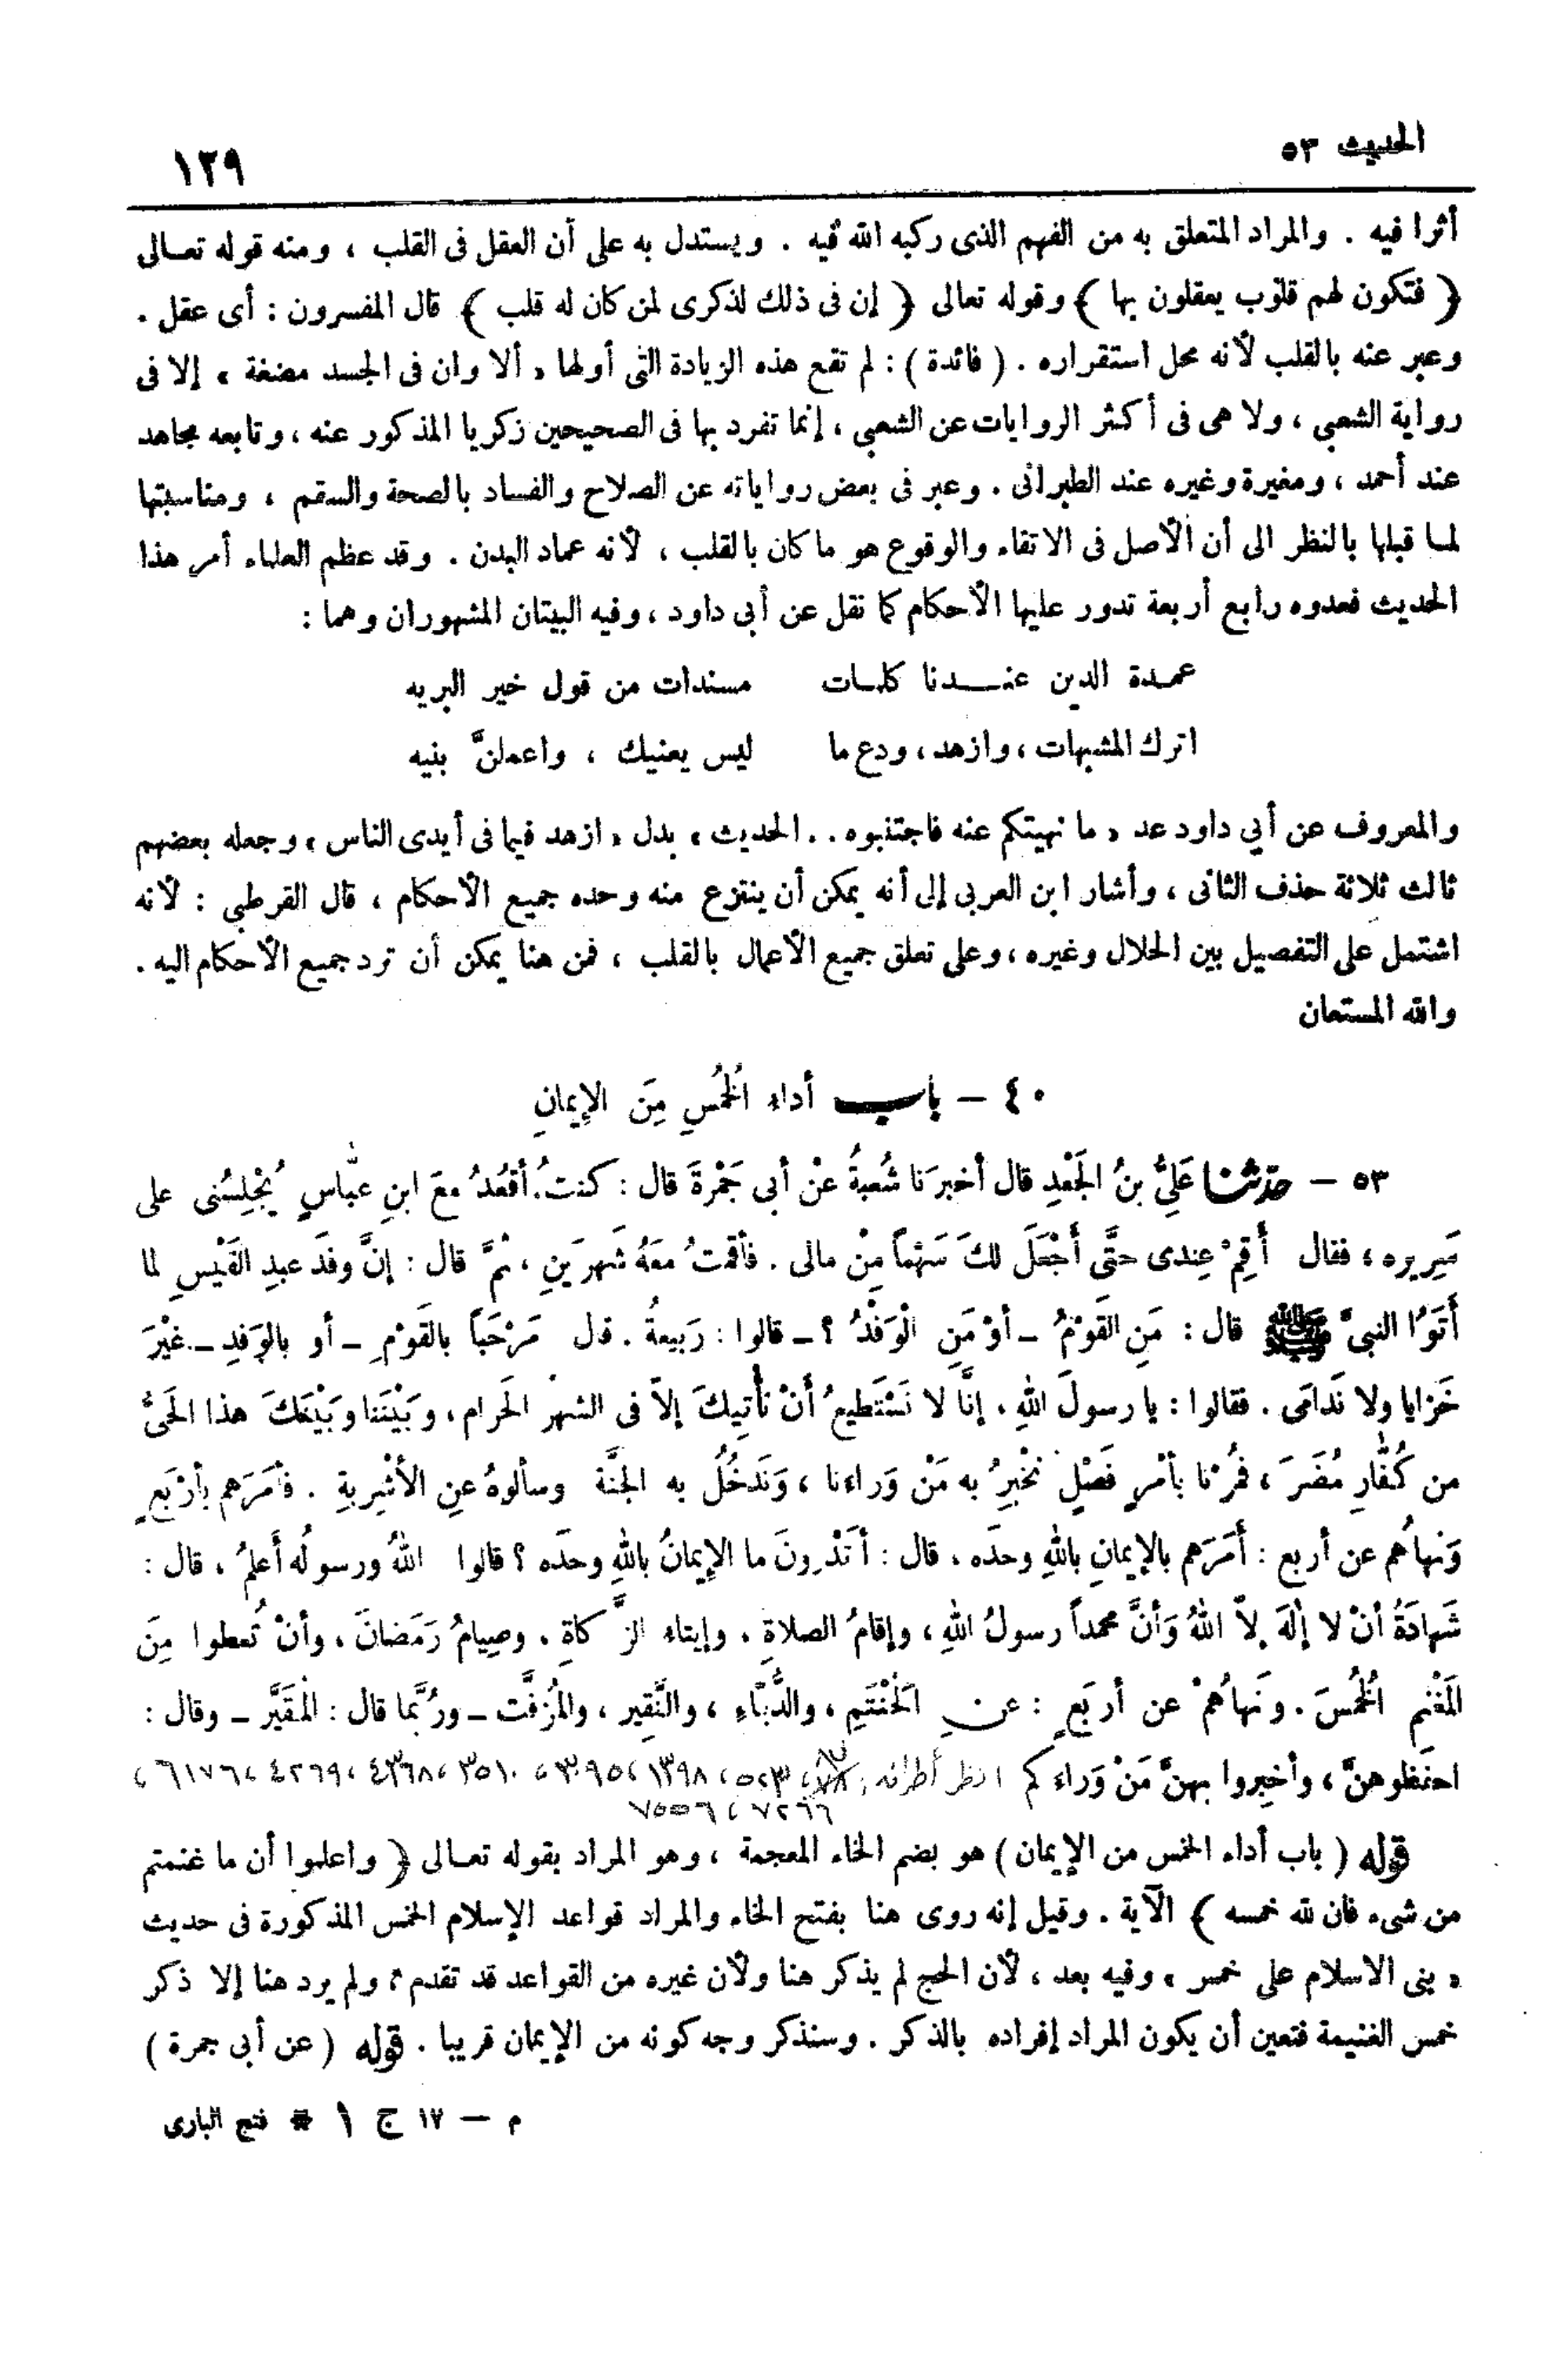 الحديث ٥٣
١٢٩
أثرا فيه . والمراد المتعلق به من الفهم الذى ركبه الله فيه . ويستدل به على أن العقل فى القلب ، ومنه قوله تعـالى
﴿ فتكون لهم قلوب يعقلون بها ﴾ وقوله تعالى ﴿ إن فى ذلك لذكرى لمن كان له قلب ﴾ قال المفسرون : أى عقل .
وعبر عنه بالقلب لأنه محل استقراره . ( فائدة ) : لم تقع هذه الزيادة التى أولها « ألا وان فى الجسد مضغة » إلا فى
رواية الشعبي ، ولا هى فى أكثر الروايات عن الشعبي ، إنما تفرد بها فى الصحيحين زكريا المذكور عنه ، وتابعه مجاهد
عند أحمد ، ومغيرة وغيره عند الطبرانى . وعبر فى بعض رواياته عن الصلاح والفساد بالصحة والسقم ، ومناسبتها
لمـا قبلها بالنظر الى أن الأصل فى الاتقاء والوقوع هو ما كان بالقلب ، لأنه عماد البدن . وقد عظم العلماء أمر هذا
الحديث فعدوه رابع أربعة تدور عليها الأحكام كما نقل عن أبى داود ، وفيه البيتان المشهوران وهما :
عمـدة الدين عنـــدنا كلمـات مسندات من قول خير البريه
اترك المشبهات ، وازهد ، ودع ما ليس يعنيك ، واعملنَّ بنيه
والمعروف عن أبي داود عد « ما نهيتكم عنه فاجتنبوه . . الحديث » بدل « ازهد فيما فى أيدى الناس » وجعله بعضهم
ثالث ثلاثة حذف الثانى ، وأشار ابن العربى إلى أنه يمكن أن ينتزع منه وحده جميع الأحكام ، قال القرطبي : لأنه
اشتمل على التفصيل بين الحلال وغيره ، وعلى تعلق جميع الأعمال بالقلب ، فمن هنا يمكن أن ترد جميع الأحكام اليه .
والله المستعان
٤٠ – باب أداءِ الخُمُسِ مِنَ الإِيمانِ
٥٣ – حدّثنا عَلِيُّ بنُ الجَعْدِ قال أخبرَنا شُعبةُ عنْ أبى جَمْرةَ قال : كنتُ أقعُدُ معَ ابنِ عبّاسٍ يُجْلِسُنى على
سَرِيره ، فقال أَقِمْ عِندى حتَّى أَجْعَلَ لكَ سَهْماً مِنْ مالى . فأقمتُ معَهُ شَهرَينِ ، ثمَّ قال : إنَّ وفدَ عبدِ القَيْسِ لما
أَتَوُا النبىَّ ﷺ قال : مَنِ القَوْمُ ـ أوْ مَنِ الْوَفْدُ ؟ ـ قالوا : رَبيعةُ . قال مَرْحَباً بالقَوْمِ ـ أو بالوَفدِ ـ غيْرَ
خَزايا ولا نَدامَى . فقالوا : يا رسولَ اللهِ ، إنَّا لا نَسْتَطيعُ أَنْ نأتِيكَ إلاّ فى الشهْرِ الحَرام ، وبَيْنَنا وبَيْنَكَ هذا الحَىُّ
من كُفّارِ مُضَرَ ، فمُرْنا بأمْرٍ فَصْلٍ نُخْبِرُ به مَنْ وَراءنا ، وَنَدخُلُ به الجَنَّة وسألوهُ عنِ الأشْرِبةِ . فأمَرَهم بأرْبَعٍ
وَنهاهُم عن أربع : أمَرَهم بالإيمانِ باللهِ وحدَه ، قال : أتَدْرونَ ما الإيمانُ باللهِ وحدَه ؟ قالوا اللهُ ورسولُه أَعلمُ ، قال :
شَهادَةُ أنْ لا إلٰهَ إلاّ اللهُ وَأنَّ محمداً رسولُ اللهِ ، وإقامُ الصلاةِ ، وإيتاء الزَّكاةِ ، وصِيامُ رَمَضانَ ، وأنْ تُعطوا مِنَ
المَغْنمِ الخُمُسَ . ونَهاهُمْ عن أربَعٍ : عنِ الحَنْتَمِ ، والدُّبّاءِ ، والنَّقِير ، والمُزفَّت ـ ورُبَّما قال : المُقَيَّر ـ وقال :
احفَظوهنَّ ، وأخبِروا بهنَّ مَنْ وَراءكم انظر أطرافه ٨٧، ٥٢٣، ١٣٩٨، ٣٠٩٥، ٣٥١٠، ٤٣٦٨، ٤٣٦٩، ٦١٧٦،
٧٢٦٦، ٧٥٥٦
قوله ( باب أداء الخمس من الإيمان ) هو بضم الخاء المعجمة ، وهو المراد بقوله تعـالى ﴿ واعلموا أن ما غنمتم
من شىء فان لله خمسه ﴾ الآية . وقيل إنه روى هنا بفتح الخاء والمراد قواعد الإسلام الخمس المذكورة فى حديث
« بنى الاسلام على خمس » وفيه بعد ، لأن الحج لم يذكر هنا ولأن غيره من القواعد قد تقدم ، ولم يرد هنا إلا ذكر
خمس الغنيمة فتعين أن يكون المراد إفراده بالذكر . وسنذكر وجه كونه من الإيمان قريبا . قوله ( عن أبى جمرة )
م – ١٧ ج ١ * فتح البارى